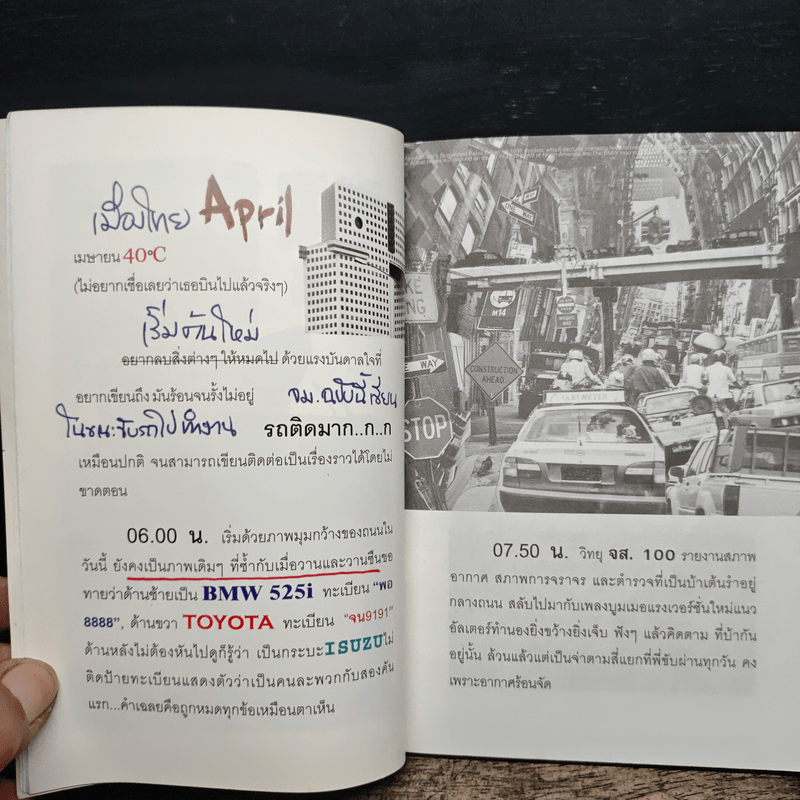 เมืองไทย April
เมษายน 40°C
(ไม่อยากเชื่อเลยว่าเธอบินไปแล้วจริงๆ)
เริ่มต้นใหม่
อยากลบสิ่งต่างๆ ให้หมดไป ด้วยแรงบันดาลใจที่
อยากเขียนถึง มันร้อนจนรั้งไม่อยู่ จม.ฉบับนี้เขียน
ในขณะขับรถไปทำงาน รถติดมาก..ก..ก
เหมือนปกติ จนสามารถเขียนติดต่อเป็นเรื่องราวได้โดยไม่
ขาดตอน
06.00 น. เริ่มด้วยภาพมุมกว้างของถนนใน
วันนี้ ยังคงเป็นภาพเดิมๆ ที่ซ้ำกับเมื่อวานและวานซืนขอ
ทายว่าด้านซ้ายเป็น BMW 525i ทะเบียน "พอ
8888", ด้านขวา TOYOTA ทะเบียน "จน9191"
ด้านหลังไม่ต้องหันไปดูก็รู้ว่า เป็นกระบะ ISUZU ไม่
ติดป้ายทะเบียนแสดงตัวว่าเป็นคนละพวกกับสองคัน
แรก...คำเฉลยคือถูกหมดทุกข้อเหมือนตาเห็น
WAY
M14
WAY
CONSTRUCTION
AHEAD
STOP
TAXI-METER
07.50 น. วิทยุ จส. 100 รายงานสภาพ
อากาศ สภาพการจราจร และตำรวจที่เป็นบ้าเต้นรำอยู่
กลางถนน สลับไปมากับเพลงบูมเมอแรงเวอร์ชั่นใหม่แนว
อัลเตอร์ทำนองยิ่งขว้างยิ่งเจ็บ ฟังๆ แล้วคิดตาม ที่บ้ากัน
อยู่นั้น ล้วนแล้วแต่เป็นจ่าตามสี่แยกที่พี่ขับผ่านทุกวัน คง
เพราะอากาศร้อนจัด